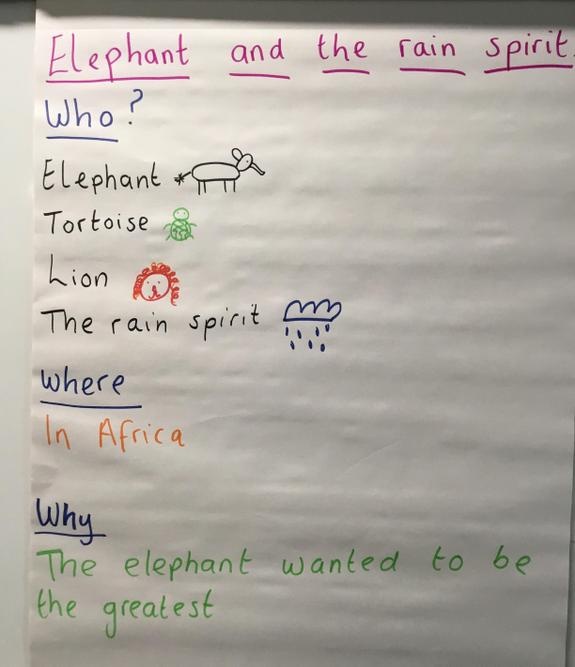 Elephant and the rain spirit.
Who?
Elephant
Tortoise
Lion
The rain spirit
Where
In Africa
Why
The elephant wanted to be
the greatest